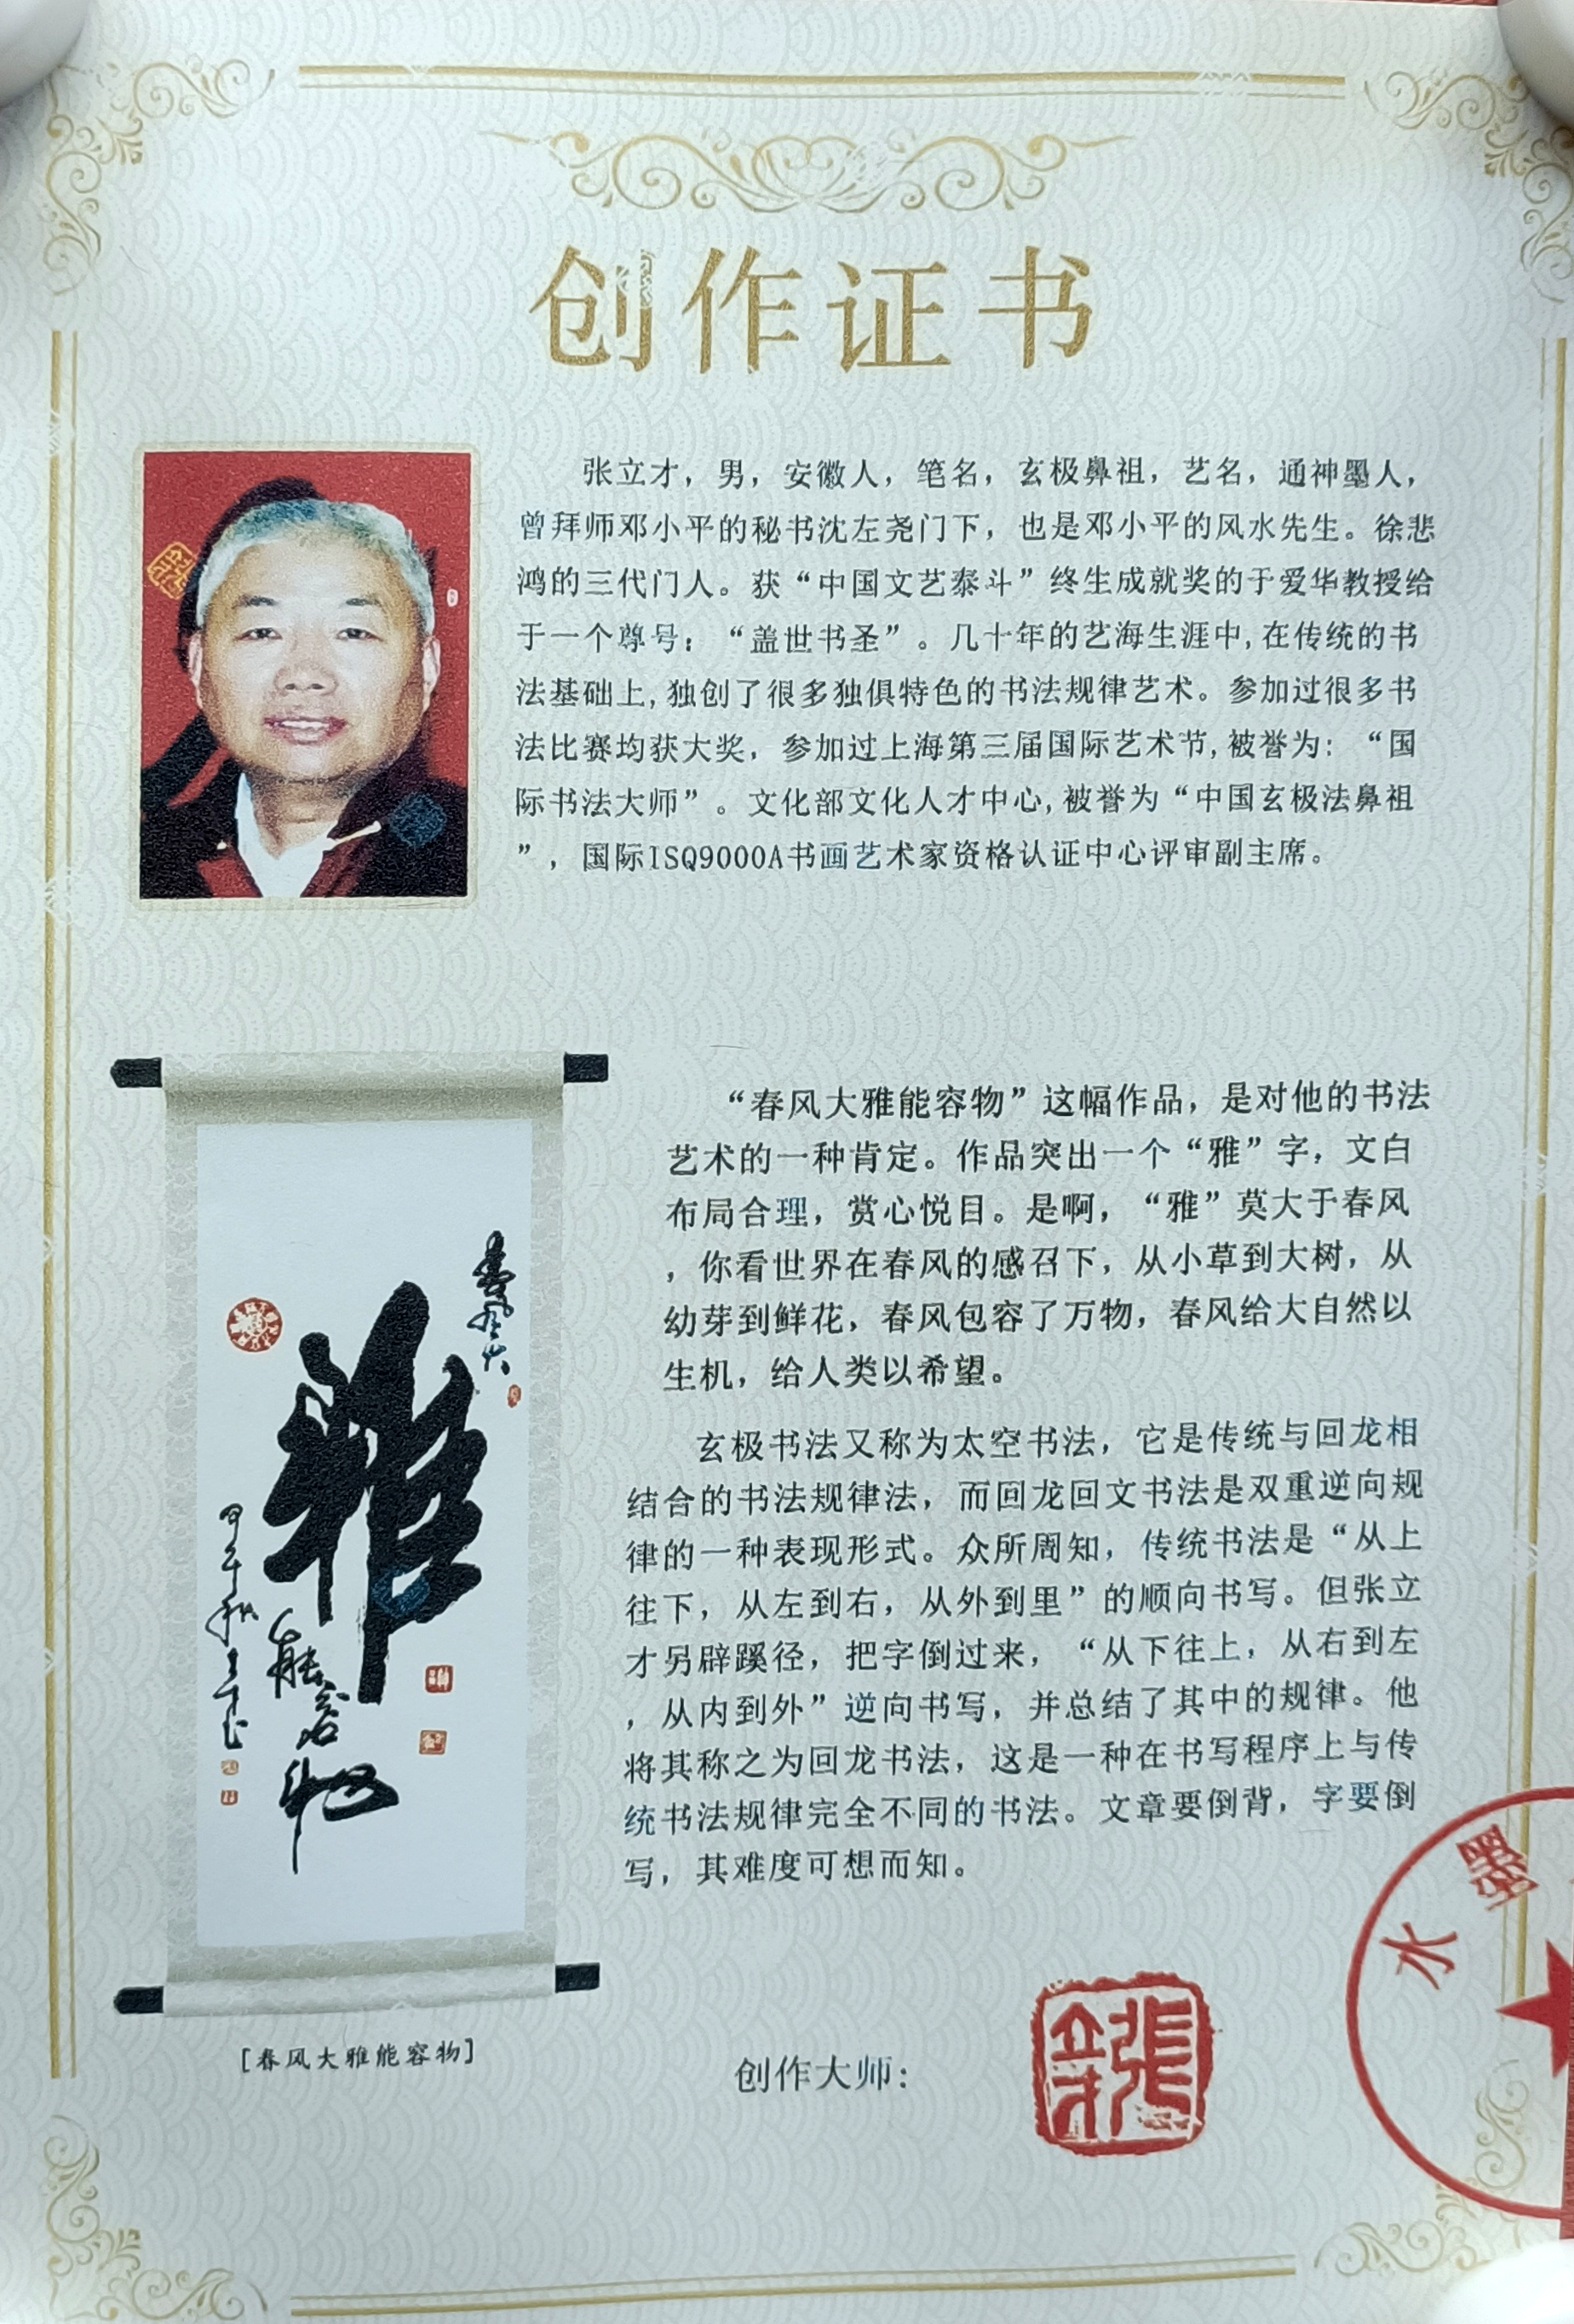 创作证书
张立才，男，安徽人，笔名，玄极鼻祖，艺名，通神墨人，
曾拜师邓小平的秘书沈左尧门下，也是邓小平的风水先生。徐悲
鸿的三代门人。获“中国文艺泰斗”终生成就奖的于爱华教授给
于一个尊号：“盖世书圣”。几十年的艺海生涯中,在传统的书
法基础上,独创了很多独俱特色的书法规律艺术。参加过很多书
法比赛均获大奖，参加过上海第三届国际艺术节,被誉为：“国
际书法大师”。文化部文化人才中心,被誉为“中国玄极法鼻祖
”，国际ISQ9000A书画艺术家资格认证中心评审副主席。
“春风大雅能容物”这幅作品，是对他的书法
艺术的一种肯定。作品突出一个“雅”字，文白
布局合理，赏心悦目。是啊，“雅”莫大于春风
，你看世界在春风的感召下，从小草到大树，从
幼芽到鲜花，春风包容了万物，春风给大自然以
生机，给人类以希望。
玄极书法又称为太空书法，它是传统与回龙相
结合的书法规律法，而回龙回文书法是双重逆向规
律的一种表现形式。众所周知，传统书法是“从上
往下，从左到右，从外到里”的顺向书写。但张立
才另辟蹊径，把字倒过来，“从下往上，从右到左
，从内到外”逆向书写，并总结了其中的规律。他
将其称之为回龙书法，这是一种在书写程序上与传
统书法规律完全不同的书法。文章要倒背，字要倒
写，其难度可想而知。
春风大
雅
能容物
甲午秋立才书
[春风大雅能容物]
创作大师：
张立才
水墨